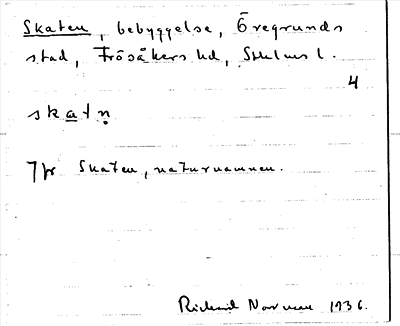 Skaten, bebyggelse, Öregrunds
stad, Frösåkers hd, Sthlms l.
4
skatn̥
Jfr Skaten, naturnamnen.
Rickard Norman 1936.